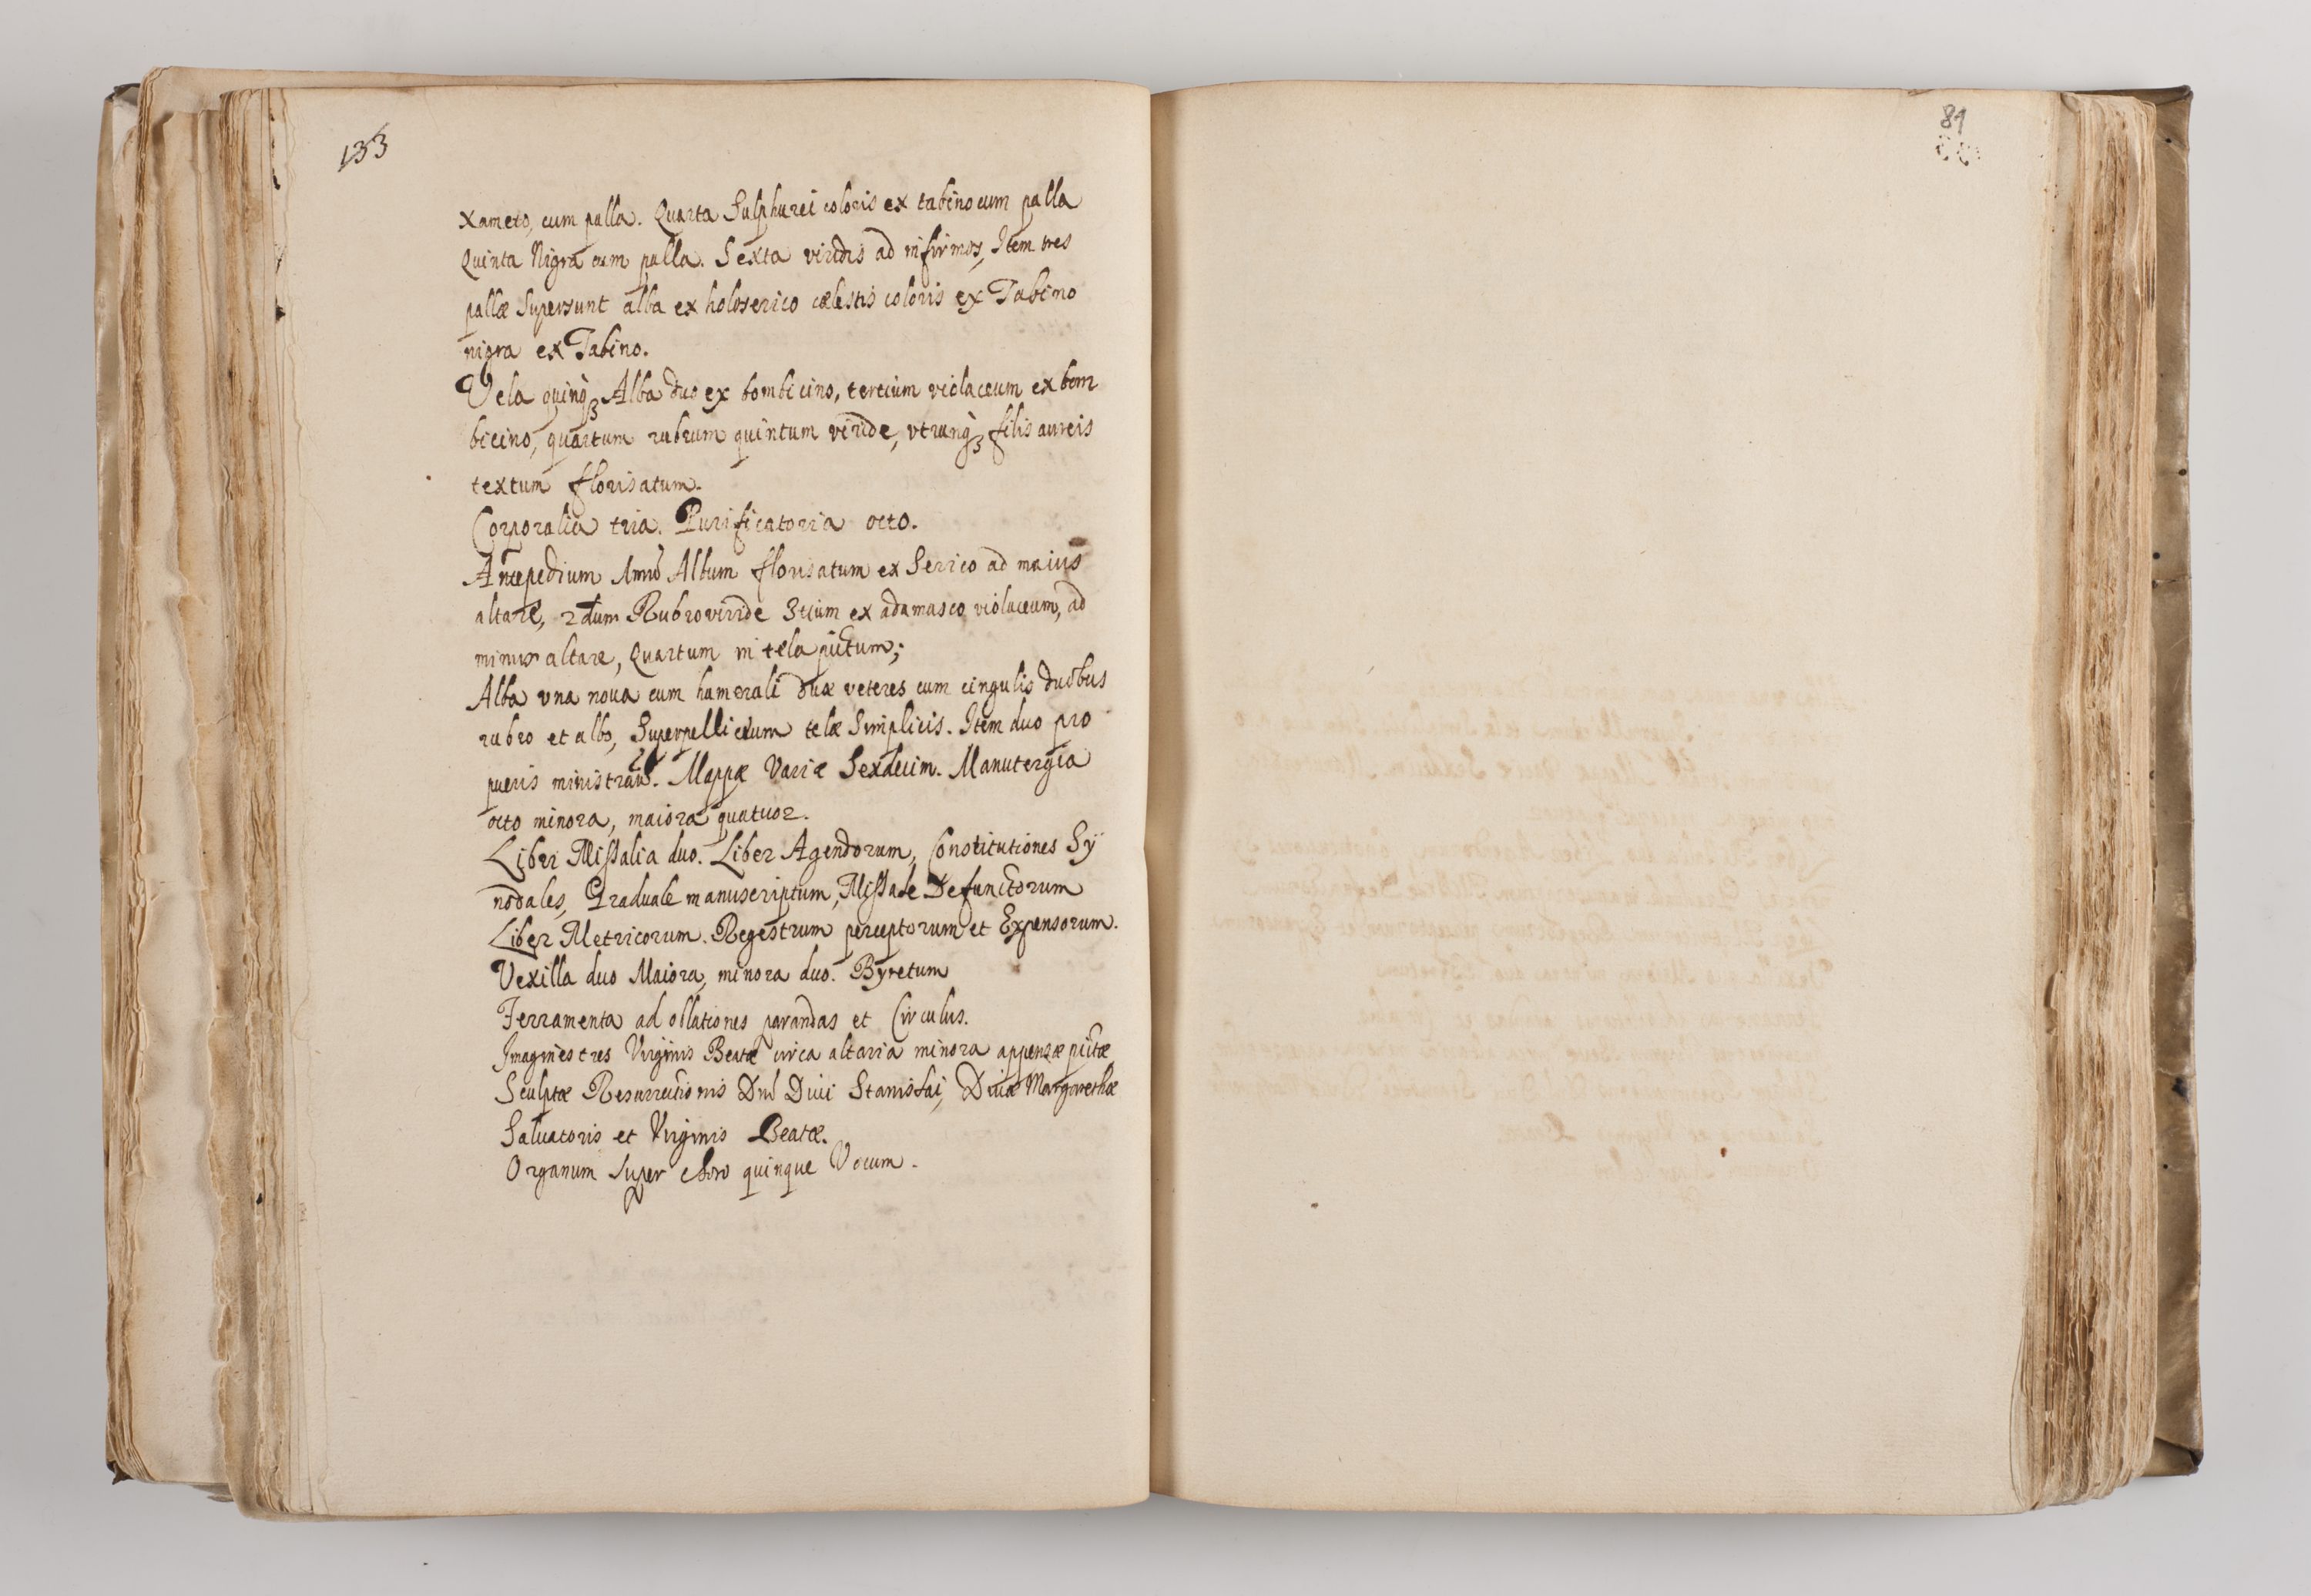 133
Xameto, cum palla. Quarta Sulphurei coloris ex tabino cum palla
Quinta Nigra cum palla. Sexta viridis ad infirmos, Item tres
pallæ Supersunt alba ex holoserico cælestis coloris ex Tabino
nigra ex Tabino.
Vela quinqꝫ Alba duo ex bombicino, tertium violaceum ex bom
bicino, quartum rubrum quintum viride, vtrunqꝫ filis aureis
textum florisatum.
Corporalia tria. Purificatoria octo.
Antepedium Album florisatum ex Serico ad maius
altare, 2dum Rubroviride 3tium ex adamasco violaceum, ad
minus altare, Quartum in tela pictum;
Alba vna noua cum humerali duæ veteres cum cingulis duobus
rubro et albo, Superpelliceum telæ Simplicis. Item duo pro
pueris Mappæ Variæ Sexdecim. Manutergia
octo minora, maiora quatuor.
Libri Missalia duo. Liber Agendorum, Constitutiones Sy
nodales, Graduale manuscriptum, Missale Defunctorum
Liber Metricorum. Regestrum perceptorum et Expensorum.
Vexilla duo Maiora, minora duo. Byretum
Ferramenta ad oblationes parandas et Circulus.
Imagines tres Virginis Beatæ circa altaria minora appensæ pictæ
Sculptæ Resurrectionis Dnĩ Diui Stanislai, Diuæ Margarethæ
Saluatoris et Virginis Beatæ.
Organum Super choro quinque Vocum.
81